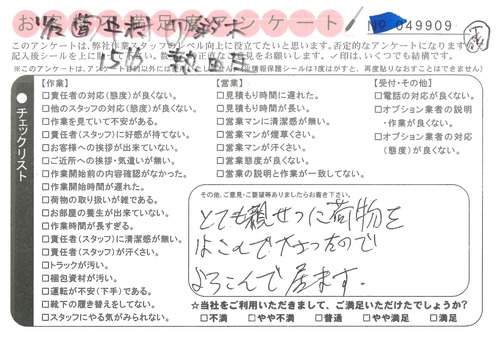 お客様満足度アンケート
№ 049909
このアンケートは、弊社作業スタッフのレベル向上に役立てたいと思います。否定的なアンケートになります
記入後シールを
お願いします。✓印は、いくつでも結構です。
※このアンケートは、
※情報保護シールは1度はがすと、再度貼りなおすことはできません
チェックリスト
【作業】
□責任者の対応(態度)が良くない。
□他のスタッフの対応(態度)が良くない。
□作業を見ていて不安がある。
□責任者(スタッフ)に好感が持てない。
□お客様への挨拶が出来ていない。
□ご近所への挨拶・気遣いが無い。
□作業開始前の内容確認がなかった。
□作業開始時間が遅れた。
□荷物の取り扱いが雑である。
□お部屋の養生が出来ていない。
□作業時間が長すぎる。
□責任者(スタッフ)に清潔感が無い。
□責任者(スタッフ)が汗くさい。
□トラックが汚い。
□梱包資材が汚い。
□運転が不安(下手)である。
□靴下の履き替えをしてない。
□スタッフにやる気がみられない。
【営業】
□見積もり時間に遅れた。
□見積もり時間が長い。
□営業マンに清潔感が無い。
□営業マンが煙草くさい。
□営業マンが汗くさい。
□営業態度が良くない。
□営業の説明と作業が一致してない。
【受付・その他】
□電話の対応が良くない。
□オプション業者の説明
・作業が良くない。
□オプション業者の対応
(態度)が良くない。
その他、ご意見・ご要望等ありましたらお書き下さい。
とても親せつに荷物を
はこんで下さったので
よろこんで居ます。
☆当社をご利用いただきまして、ご満足いただけたでしょうか?
□不満 □やや不満 □普通 □やや満足 □満足